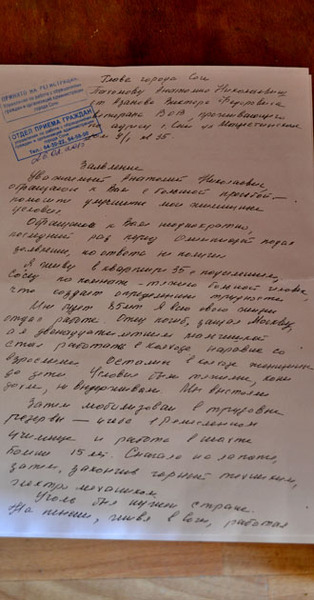 ПРИНЯТО НА РЕГИСТРАЦИЮ
ОТДЕЛ ПРИЕМА ГРАЖДАН
Главе города Сочи
Пахомову Анатолию Николаевичу
от Виктора Федоровича
ветерана ВОВ, проживающего
по адресу г. Сочи ул
Заявление
Уважаемый Анатолий Николаевич,
обращаюсь к Вам с большой просьбой –
помочь улучшить мои жилищные
условия.
Обращался к Вам неоднократно,
последний раз перед Олимпиадой подал
заявление, но ответа не получил
Я живу в квартире 35 с подселением,
Сосед по комнате – тяжело больной человек,
что создает определенные трудности
Мне будет 85 лет. Я всю свою жизнь
отдал работе. Отец погиб, защищая Москву,
а я двенадцатилетним мальчишкой
стал работать в колхозе наравне со
взрослыми. Остались в колхозе женщины
да дети. Условия были тяжелые, кони
дохли, не выдерживали. Мы выстояли
Затем мобилизован в трудовые
резервы — учеба в Ремесленном
училище и работа в шахте
более 15 лет. Сначала на лопате,
затем, закончив горный техникум,
электромехаником.
Уголь был нужен стране.
На пенсии, живя в Сочи, работал